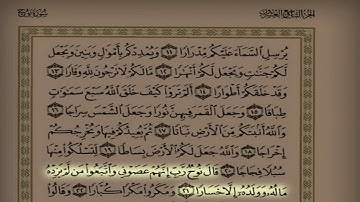 الجزء التاسع والعشرون
سورة نوح
يُرْسِلِ السَّمَاءَ عَلَيْكُم مِّدْرَارًا ١١ وَيُمْدِدْكُم بِأَمْوَالٍ وَبَنِينَ وَيَجْعَل
لَّكُمْ جَنَّاتٍ وَيَجْعَل لَّكُمْ أَنْهَارًا ١٢ مَّا لَكُمْ لَا تَرْجُونَ لِلَّهِ وَقَارًا ١٣
وَقَدْ خَلَقَكُمْ أَطْوَارًا ١٤ أَلَمْ تَرَوْا كَيْفَ خَلَقَ اللَّهُ سَبْعَ سَمَاوَاتٍ
طِبَاقًا ١٥ وَجَعَلَ الْقَمَرَ فِيهِنَّ نُورًا وَجَعَلَ الشَّمْسَ سِرَاجًا ١٦
وَاللَّهُ أَنبَتَكُم مِّنَ الْأَرْضِ نَبَاتًا ١٧ ثُمَّ يُعِيدُكُمْ فِيهَا وَيُخْرِجُكُمْ
إِخْرَاجًا ١٨ وَاللَّهُ جَعَلَ لَكُمُ الْأَرْضَ بِسَاطًا ١٩ لِّتَسْلُكُوا مِنْهَا
سُبُلًا فِجَاجًا ٢٠ قَالَ نُوحٌ رَّبِّ إِنَّهُمْ عَصَوْنِي وَاتَّبَعُوا مَن لَّمْ يَزِدْهُ
مَالُهُ وَوَلَدُهُ إِلَّا خَسَارًا ٢١ وَمَكَرُوا مَكْرًا كُبَّارًا ٢٢ وَقَالُوا